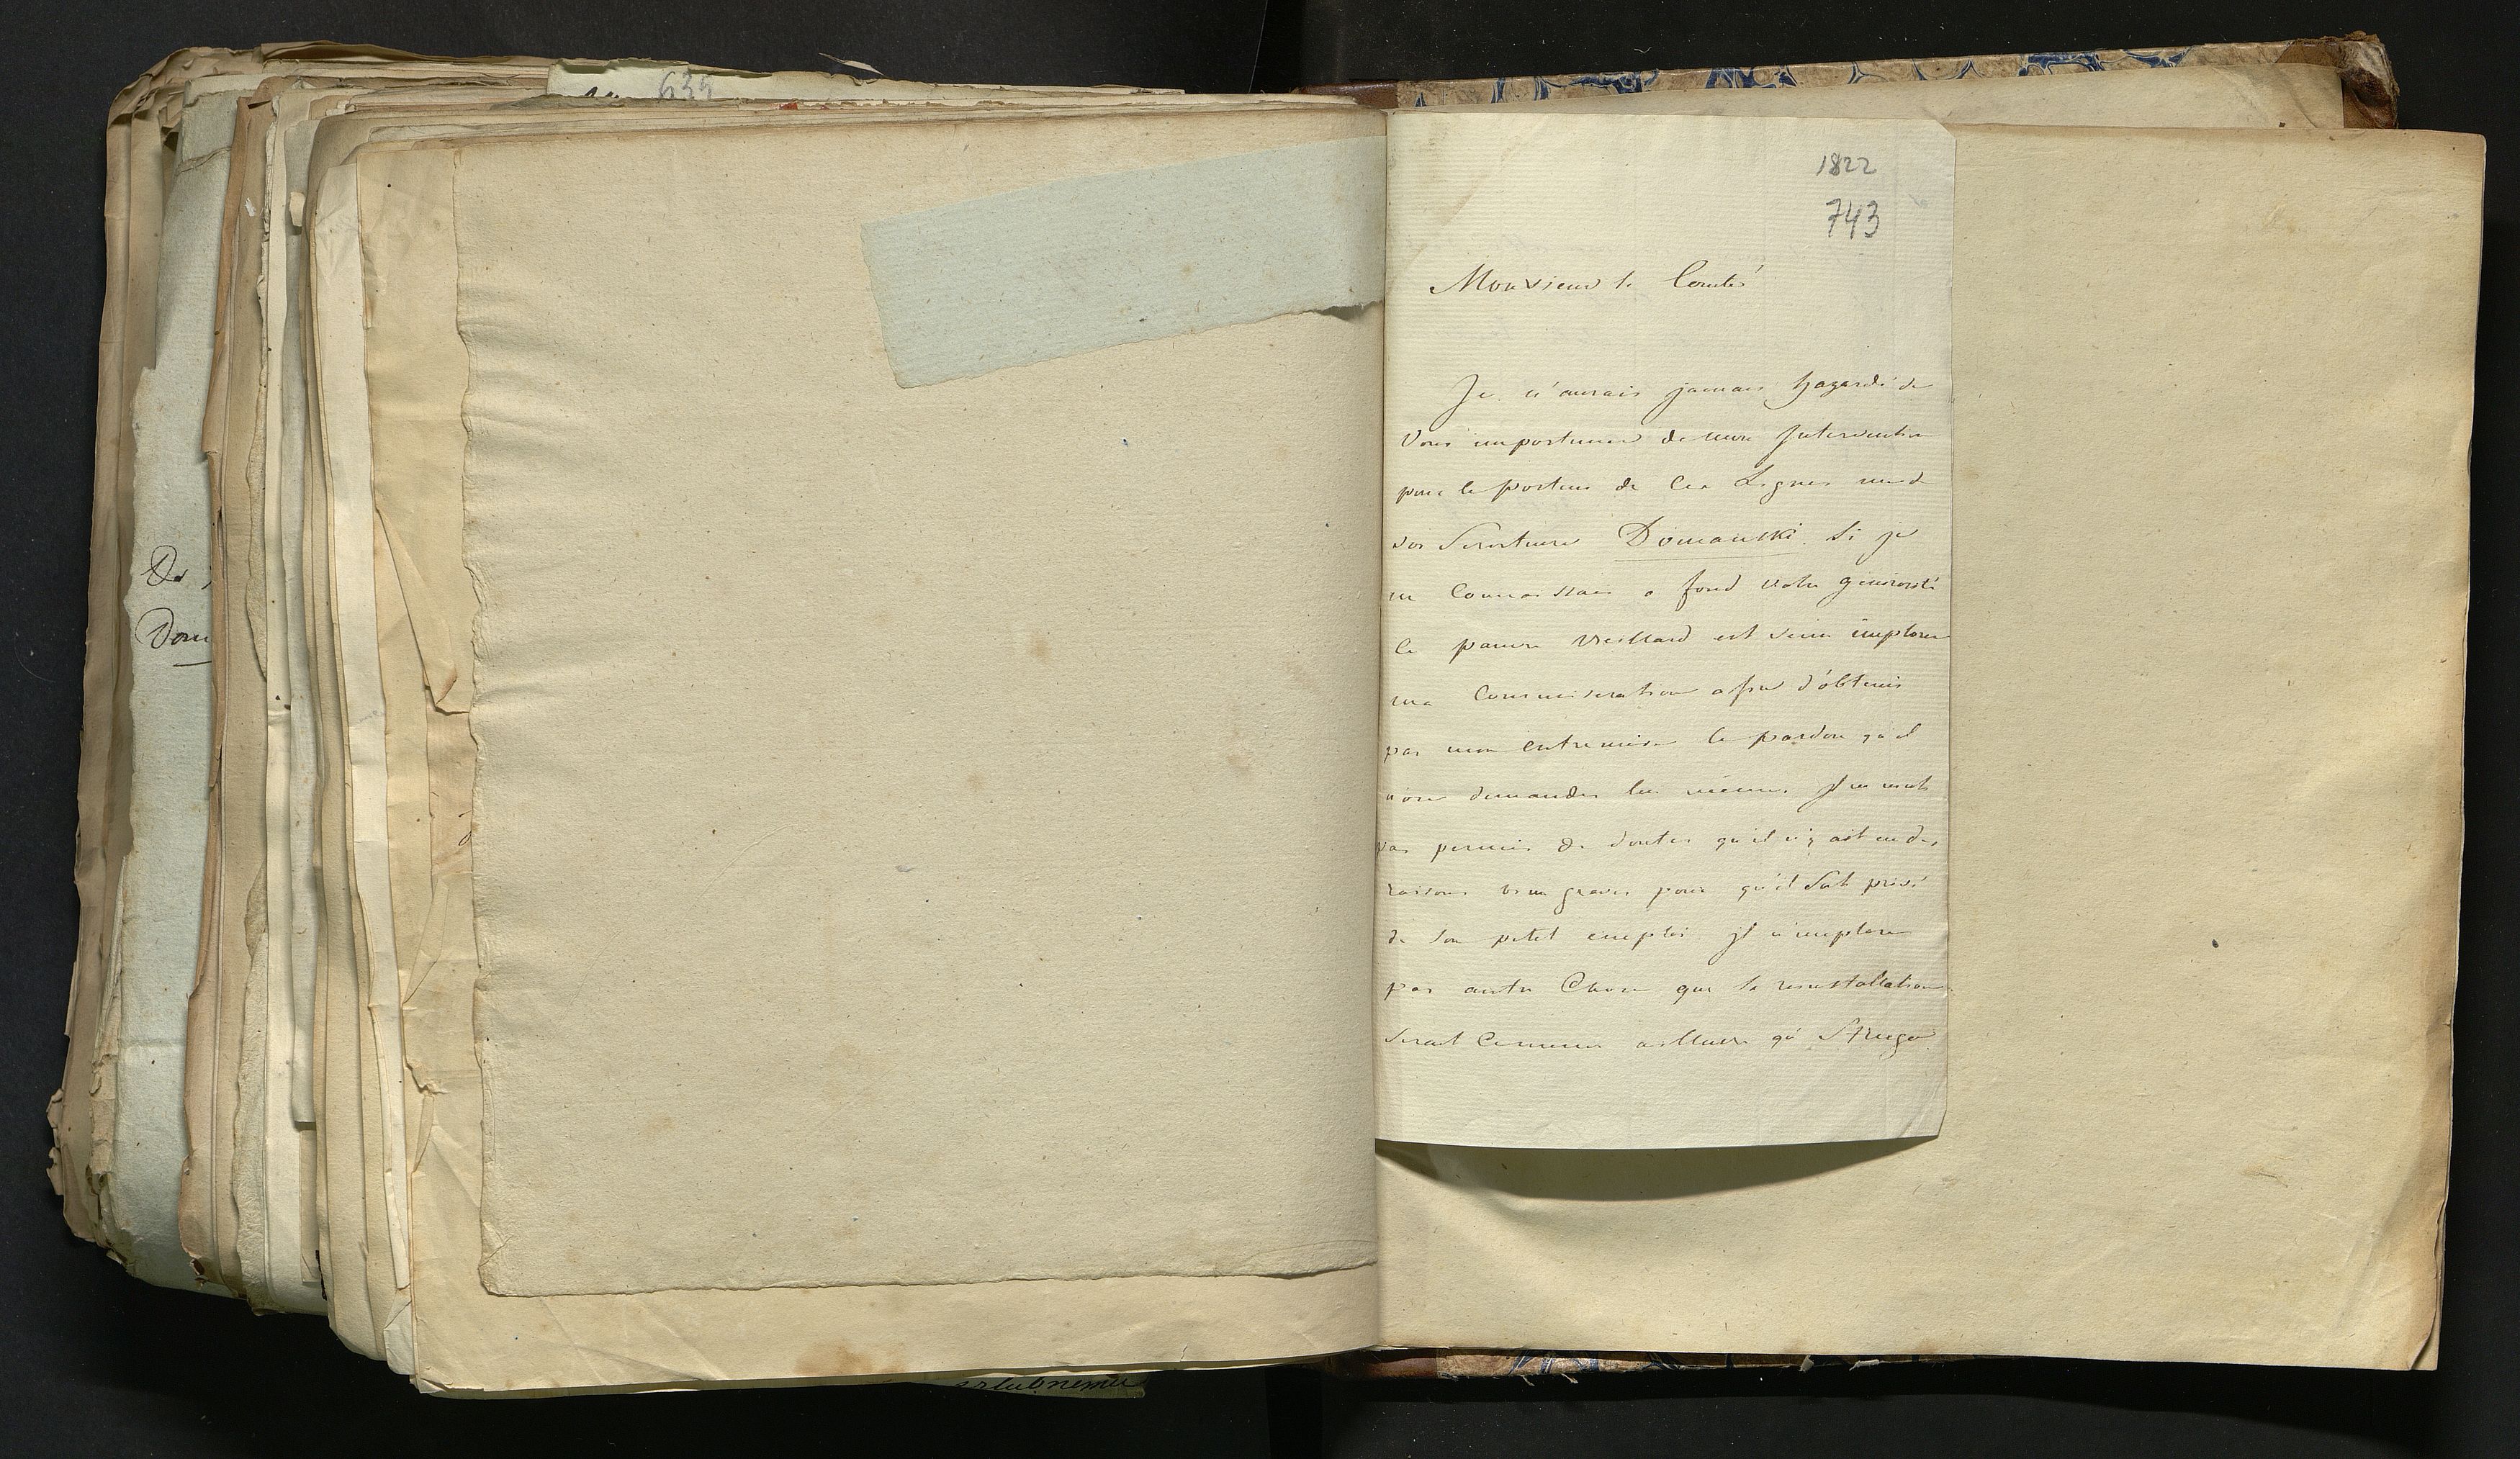 635
Do
Dom
1822
743
Monsieur le Comte
Je n'aurais jamais hazardé de
Vous importuner de mon Intervention
pour le porteur de Ces Lignes un d
vos Serviteurs Domanski. Si je
ne Connaissais a fond votre générosité
Ce pauvre Vieillard est venu implorer
ma Commiseration afin d'obtenir
par mon entremise le pardon qu'il
n'ose demander lui meme. Il ne m'est
pas permis de douter qu'il n'y ait eu des
raisons bien graves pour qu'il Soit privé
de Son petit emploi. Il n'implore
pas autre Chose que Sa reinstallation
Serait Comme ailleurs qu'a Struga